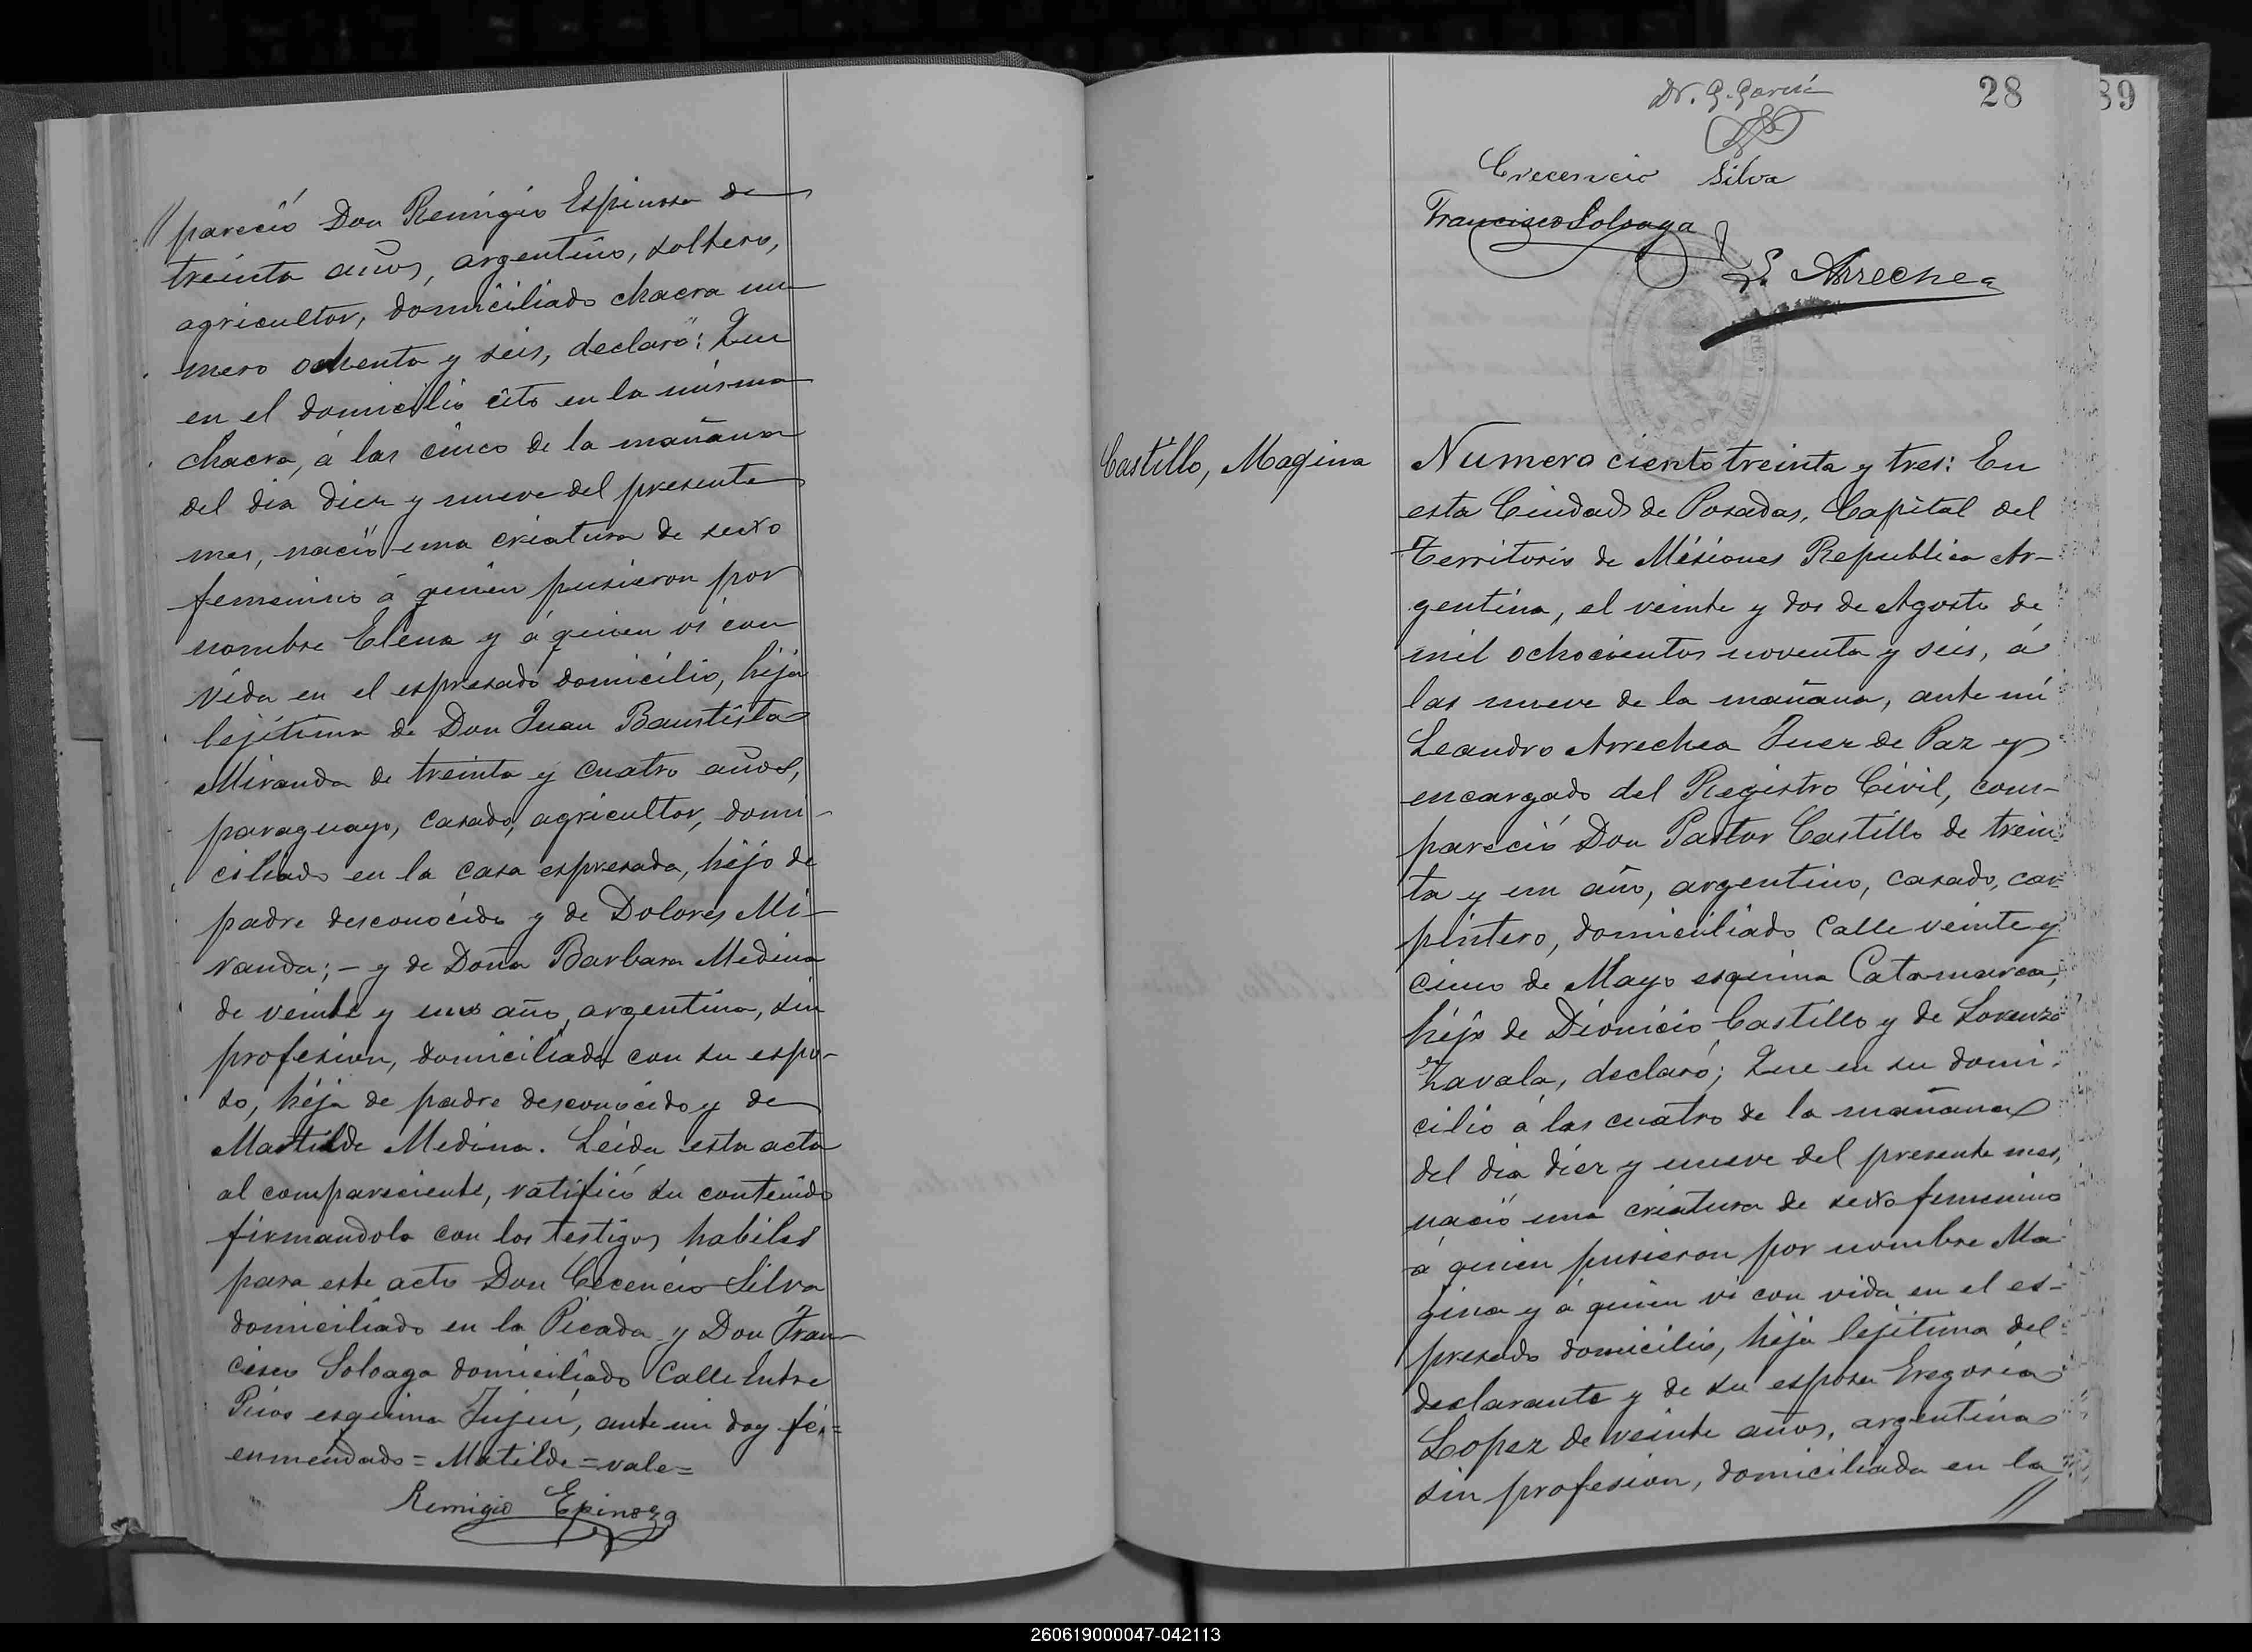 // pareció Don Remigio Espinosa de
treinta años, argentino, soltero,
agricultor, domiciliado chacra nu-
mero ochenta y seis, declaró: Que
en el domicilio cito en la misma
chacra, á las cinco de la mañana
del dia diez y nueve del presente
mes, nació una criatura de sexo
femenino á quien pusieron por
nombre Elena y á quien vi con
vida en el espresado domicilio, hija
lejitima de Don Juan Baustista
Miranda de treinta y cuatro años,
paraguayo, casado, agricultor, domi-
ciliado en la casa espresada, hijo de
padre desconocido y de Dolores Mi-
randa; - y de Doña Barbara Medina
de veinte y un año, argentina, sin
profesion, domiciliada con su espo-
so, hija de padre desconocido y de
Matilde Medina. Leida esta acta
al compareciente, ratificó su contenido
firmandola con los testigos habiles
para este acto Don Crecencio Silva
domiciliado en la Picada y Don Fran-
cisco Soloaga domiciliado Calle Entre
Rios esquina Jujui, ante mi doy fé.=
enmendado = Matilde = vale =
Remigio Epinoza
28
89
Dr. G. Garcia
Crecencio Silva
Francisco Soloaga
L. Arrechea
Castillo, Magina
Numero ciento treinta y tres: En
esta Ciudad de Posadas, Capital del
Territorio de Misiones Republica Ar-
gentina, el veinte y dos de Agosto de
mil ochocientos noventa y seis, á
las nueve de la mañana, ante mi
Leandro Arrechea Juez de Paz y
encargado del Registro Civil, com-
pareció Don Pastor Castillo de trein
ta y un año, argentino, casado, car-
pintero, domiciliado Calle veinte y
cinco de Mayo esquina Catamarca,
hijo de Dionicio Castillo y de Lorenza
Zavala, declaró; Que en su domi-
cilio á las cuatro de la mañana
del dia diez y nueve del presente mes,
nació una criatura de sexo femenino
á quien pusieron por nombre Ma-
gina y á quien vi con vida en el es-
presado domicilio, hija lejitima del
declarante y de su esposa Gregoria
Lopez de veinte años, argentina
sin profesion, domiciliada en la
//
260619000047-042113